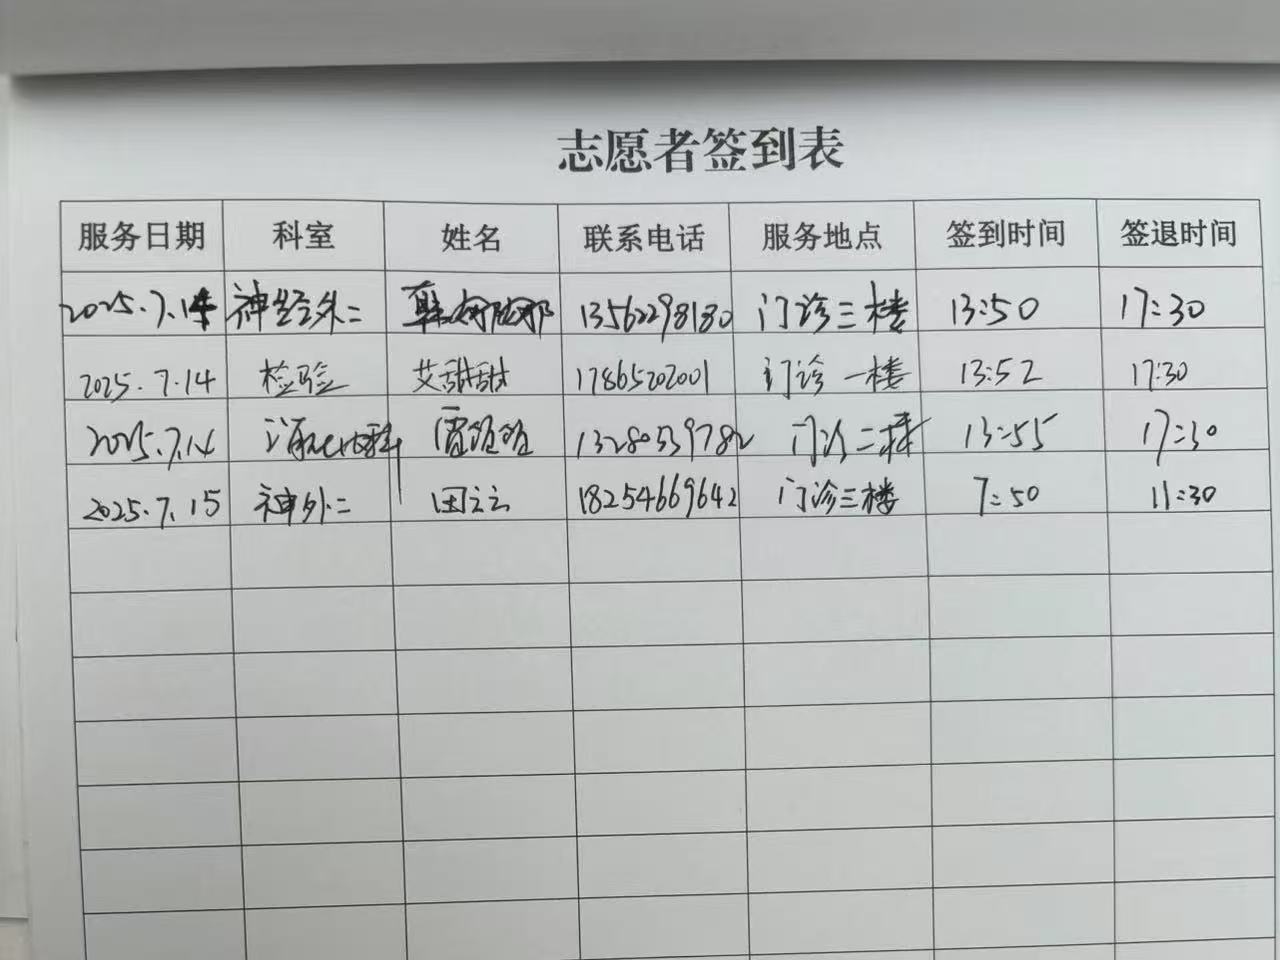 志愿者签到表
服务日期 科室 姓名 联系电话 服务地点 签到时间 签退时间
2025.7.14 神经外二 13562298180 门诊三楼 13:50 17:30
2025.7.14 检验 艾甜甜 17865202001 门诊一楼 13:52 17:30
2025.7.14 消化内科 雷 13280539782 门诊二楼 13:55 17:30
2025.7.15 神外二 田立云 18254669642 门诊三楼 7:50 11:30